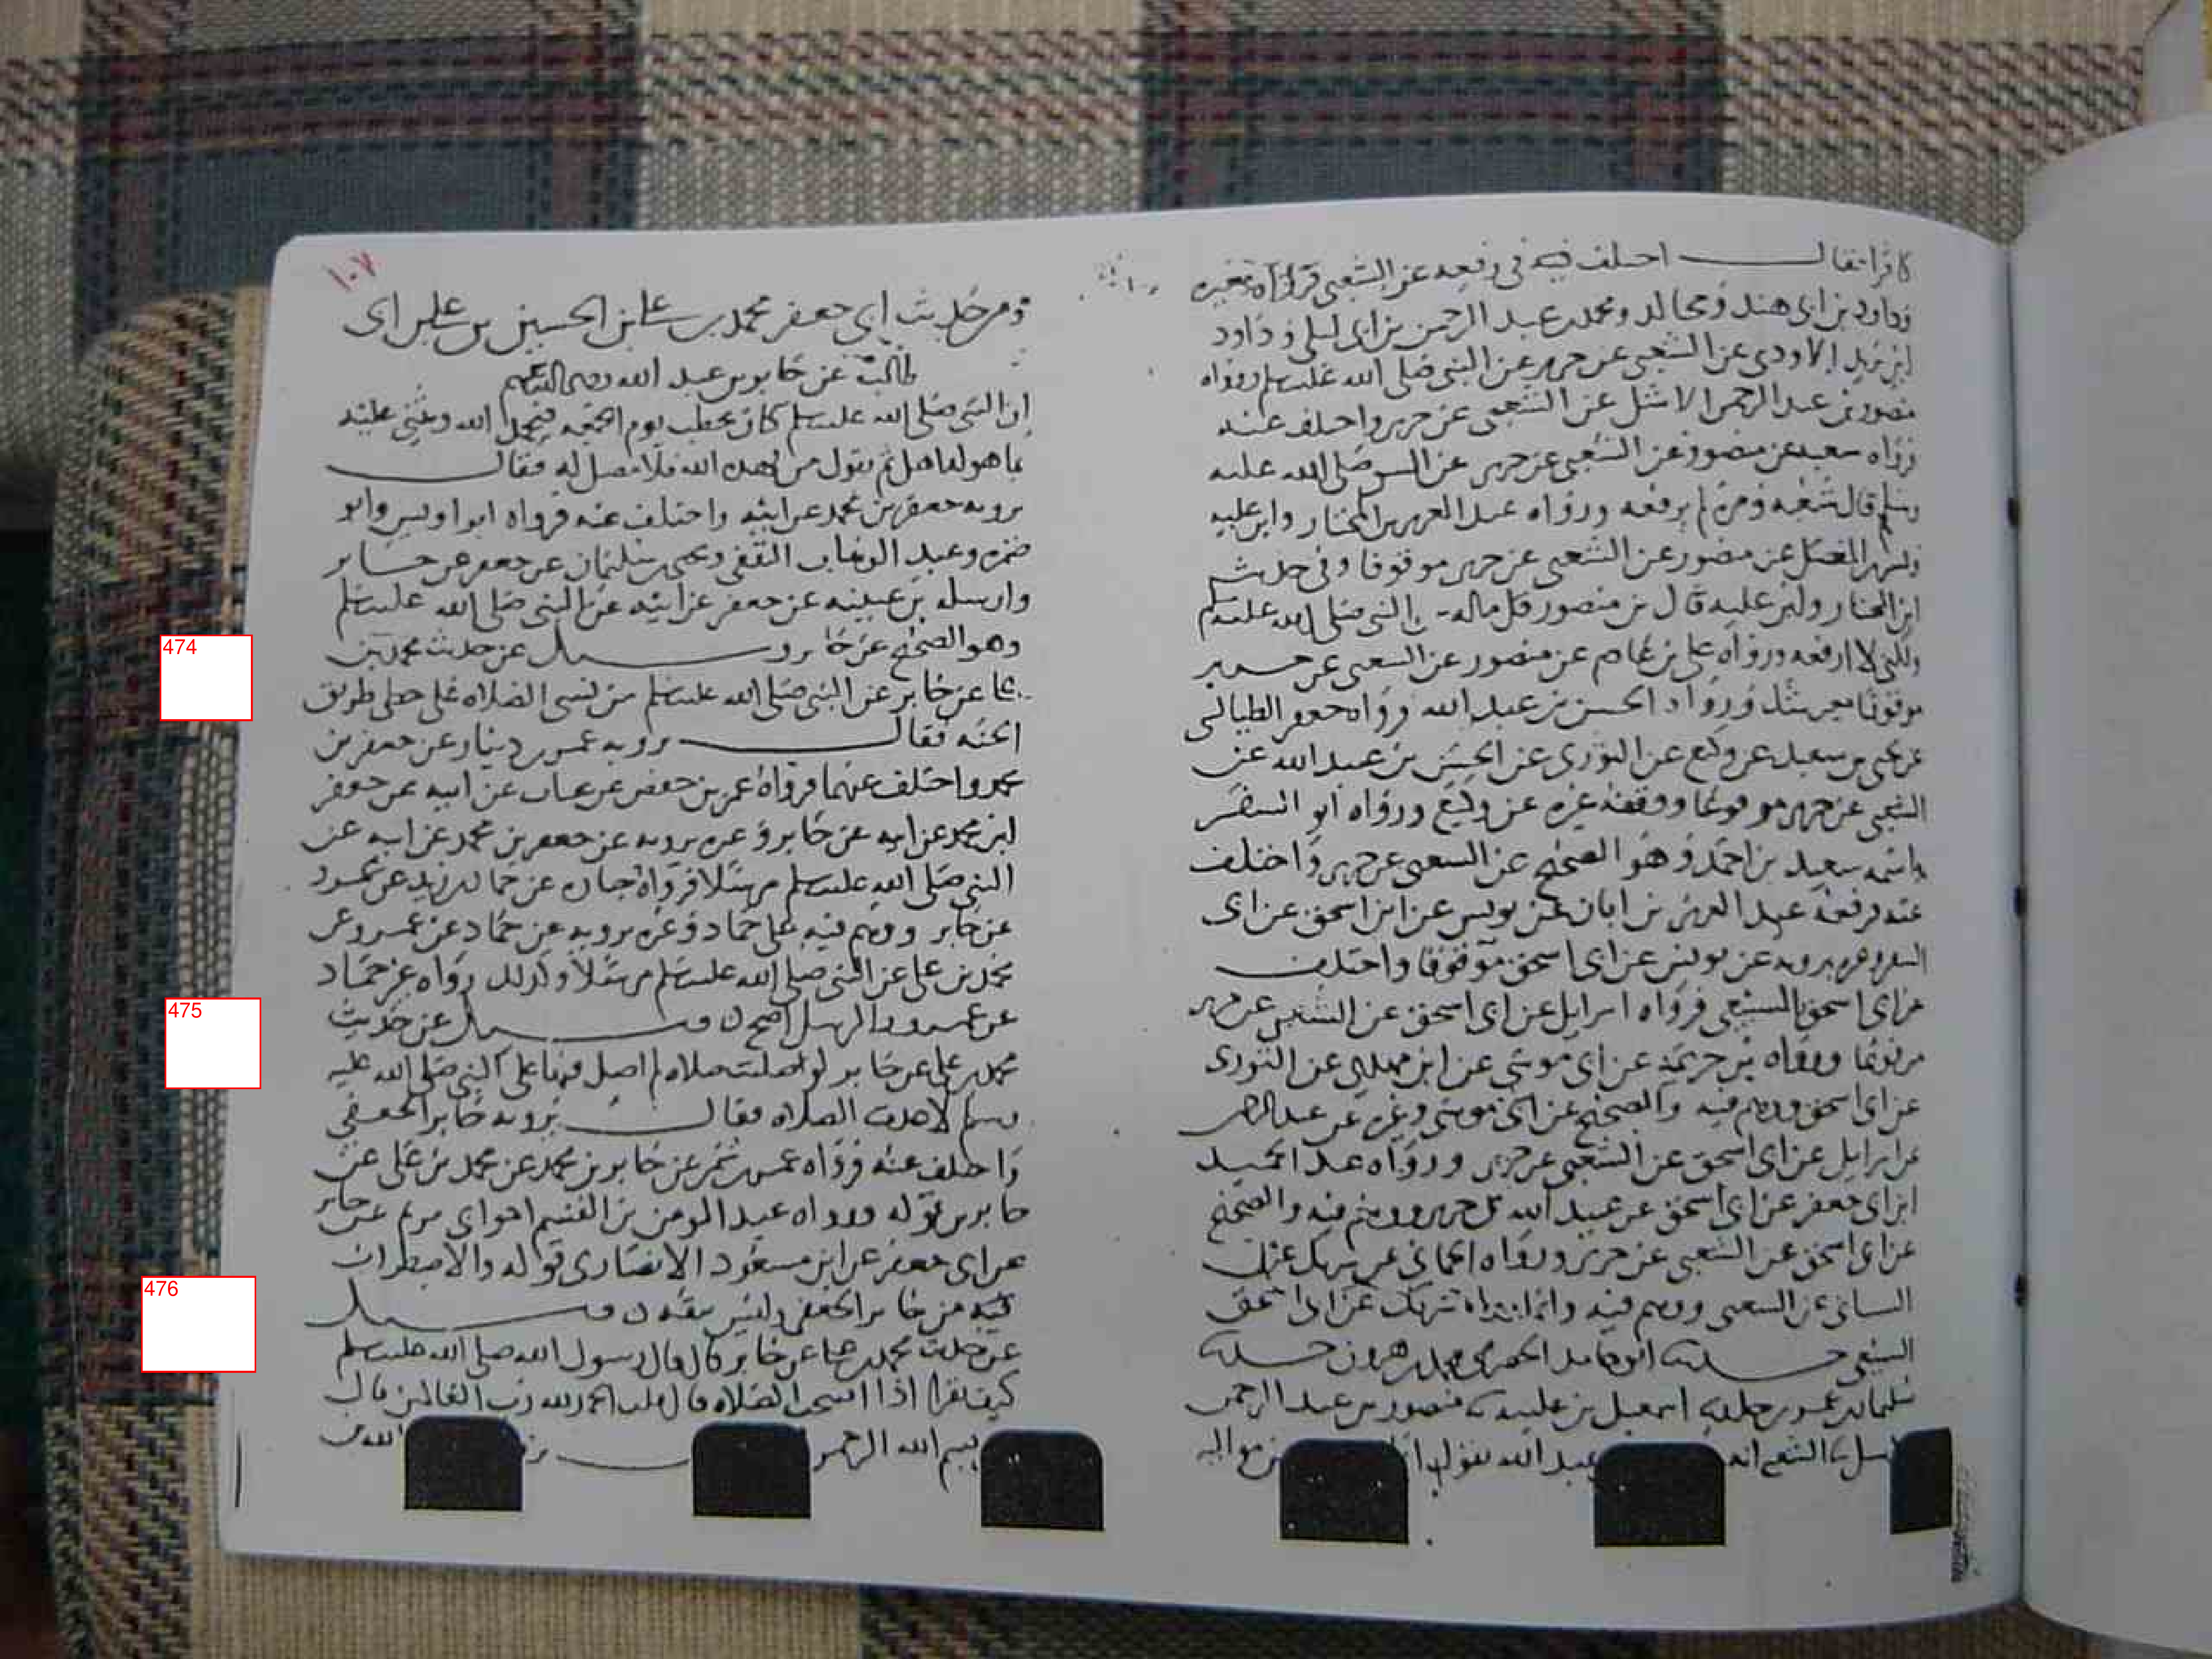 كافرا فقال اختلف فيه في رفعه عن الشعبي فرواه مغيره
وداود بن ابي هند ومجالد ومحمد بن عبد الرحمن بن ابي ليلى وداود
ابن يزيد الاودي عن الشعبي عن جرير عن النبي صلى الله عليه وسلم ورواه
منصور بن عبد الرحمن الاشل عن الشعبي عن جرير واختلف عنه
فرواه سعيد عن منصور عن الشعبي عن جرير عن النبي صلى الله عليه
وسلم قال شعبه ومره لم يرفعه ورواه عبد العزيز بن المختار وابن عليه
وبشر بن المفضل عن منصور عن الشعبي عن جرير موقوفا وفي حديث
ابن المختار وابن عليه قال بن منصور قد قاله النبي صلى الله عليه وسلم
ولكني لا ارفعه ورواه علي بن عاصم عن منصور عن الشعبي عن جرير
موقوفا ورواه الحسن بن عبيد الله فرواه جعفر الطيالسي
عن يحيى بن سعيد عن وكيع عن الثوري عن الحسن بن عبيد الله عن
الشعبي عن جرير مرفوعا ووقفه غيره عن وكيع ورواه ابو السفر
واسمه سعيد بن احمد وهو الصحيح عن الشعبي عن جرير واختلف
عنه فرفعه عبد العزيز بن ابان عن يونس عن ابن اسحق عن ابي
السفر وغيره يرويه عن يونس عن ابي اسحق موقوفا واختلف
عن ابي اسحق السبيعي فرواه اسرايل عن ابي اسحق عن الشعبي عن جرير
مرفوعا ورواه بن خزيمة عن ابي موسى عن ابن مهدي عن الثوري
عن ابي اسحق ووهم فيه والصحيح عن ابي موسى وغيره عن عبد الرحمن
عن اسرايل عن ابي اسحق عن الشعبي عن جرير ورواه عبد الحميد
ابن ابي جعفر عن ابي اسحق عن عبيد الله بن جرير ووهم فيه والصحيح
عن ابي اسحق عن الشعبي عن جرير ورواه الحماني عن شريك عن
الشعبي ووهم فيه وانما رواه شريك عن ابي اسحق
السبيعي حدثنا ابو حامد الحضرمي محمد بن هرون حدثنا
سليمان بن عمر بن خالد اسمعيل بن عليه منصور بن عبد الرحمن
الشعبي انه عبد الله يقول من مواليه
١٠٧
ومن حديث ابي جعفر محمد بن علي بن الحسين بن علي بن ابي
طالب عن جابر بن عبد الله رضي الله عنهم
ان النبي صلى الله عليه وسلم كان يخطب يوم الجمعه فيحمد الله ويثني عليه
بما هو له اهل ثم يقول من يهده الله فلا مضل له فقال
يرويه جعفر بن محمد عن ابيه واختلف عنه فرواه ابو اويس وابو
ضمره وعبد الوهاب الثقفي ويحيى بن سليمان عن جعفر عن جابر
وارسله بن عيينه عن جعفر عن ابيه عن النبي صلى الله عليه وسلم
وهو الصحيح عن جابر وسيل عن حديث محمد بن
474
علي عن جابر عن النبي صلى الله عليه وسلم من نسي الصلاه علي خطي طريق
الجنه فقال يرويه عمرو بن دينار عن جعفر بن
محمد واختلف عنهما فرواه عمر بن حفص بن غياث عن ابيه عن جعفر
ابن محمد عن ابيه عن جابر وغيره يرويه عن جعفر بن محمد عن ابيه عن
النبي صلى الله عليه وسلم مرسلا فرواه جباره عن حماد بن زيد عن عمرو
عن جابر ووهم فيه على حماد وغيره يرويه عن حماد عن عمرو عن
محمد بن علي عن النبي صلى الله عليه وسلم مرسلا وكذلك رواه عن حماد
عن عمرو والمرسل اصح وسيل عن حديث
475
محمد بن علي عن جابر لو صليت صلاه لم اصل فيها على النبي صلى الله عليه
وسلم لاعدت الصلاه فقال يرويه جابر الجعفي
واختلف عنه فرواه عمرو بن شمر عن جابر بن محمد عن محمد بن علي عن
جابر من قوله ورواه عبد المومن بن القسم اخو ابي مريم عن جابر
عن ابي جعفر عن ابن مسعود الانصاري قوله والاضطراب
فيه من جابر الجعفي وليس بثقه وسيل
476
عن حديث محمد بن علي عن جابر قال قال رسول الله صلى الله عليه وسلم
كيف تقرا اذا افتتحت الصلاه قال قلت الحمد لله رب العالمين قال
بسم الله الرحمن